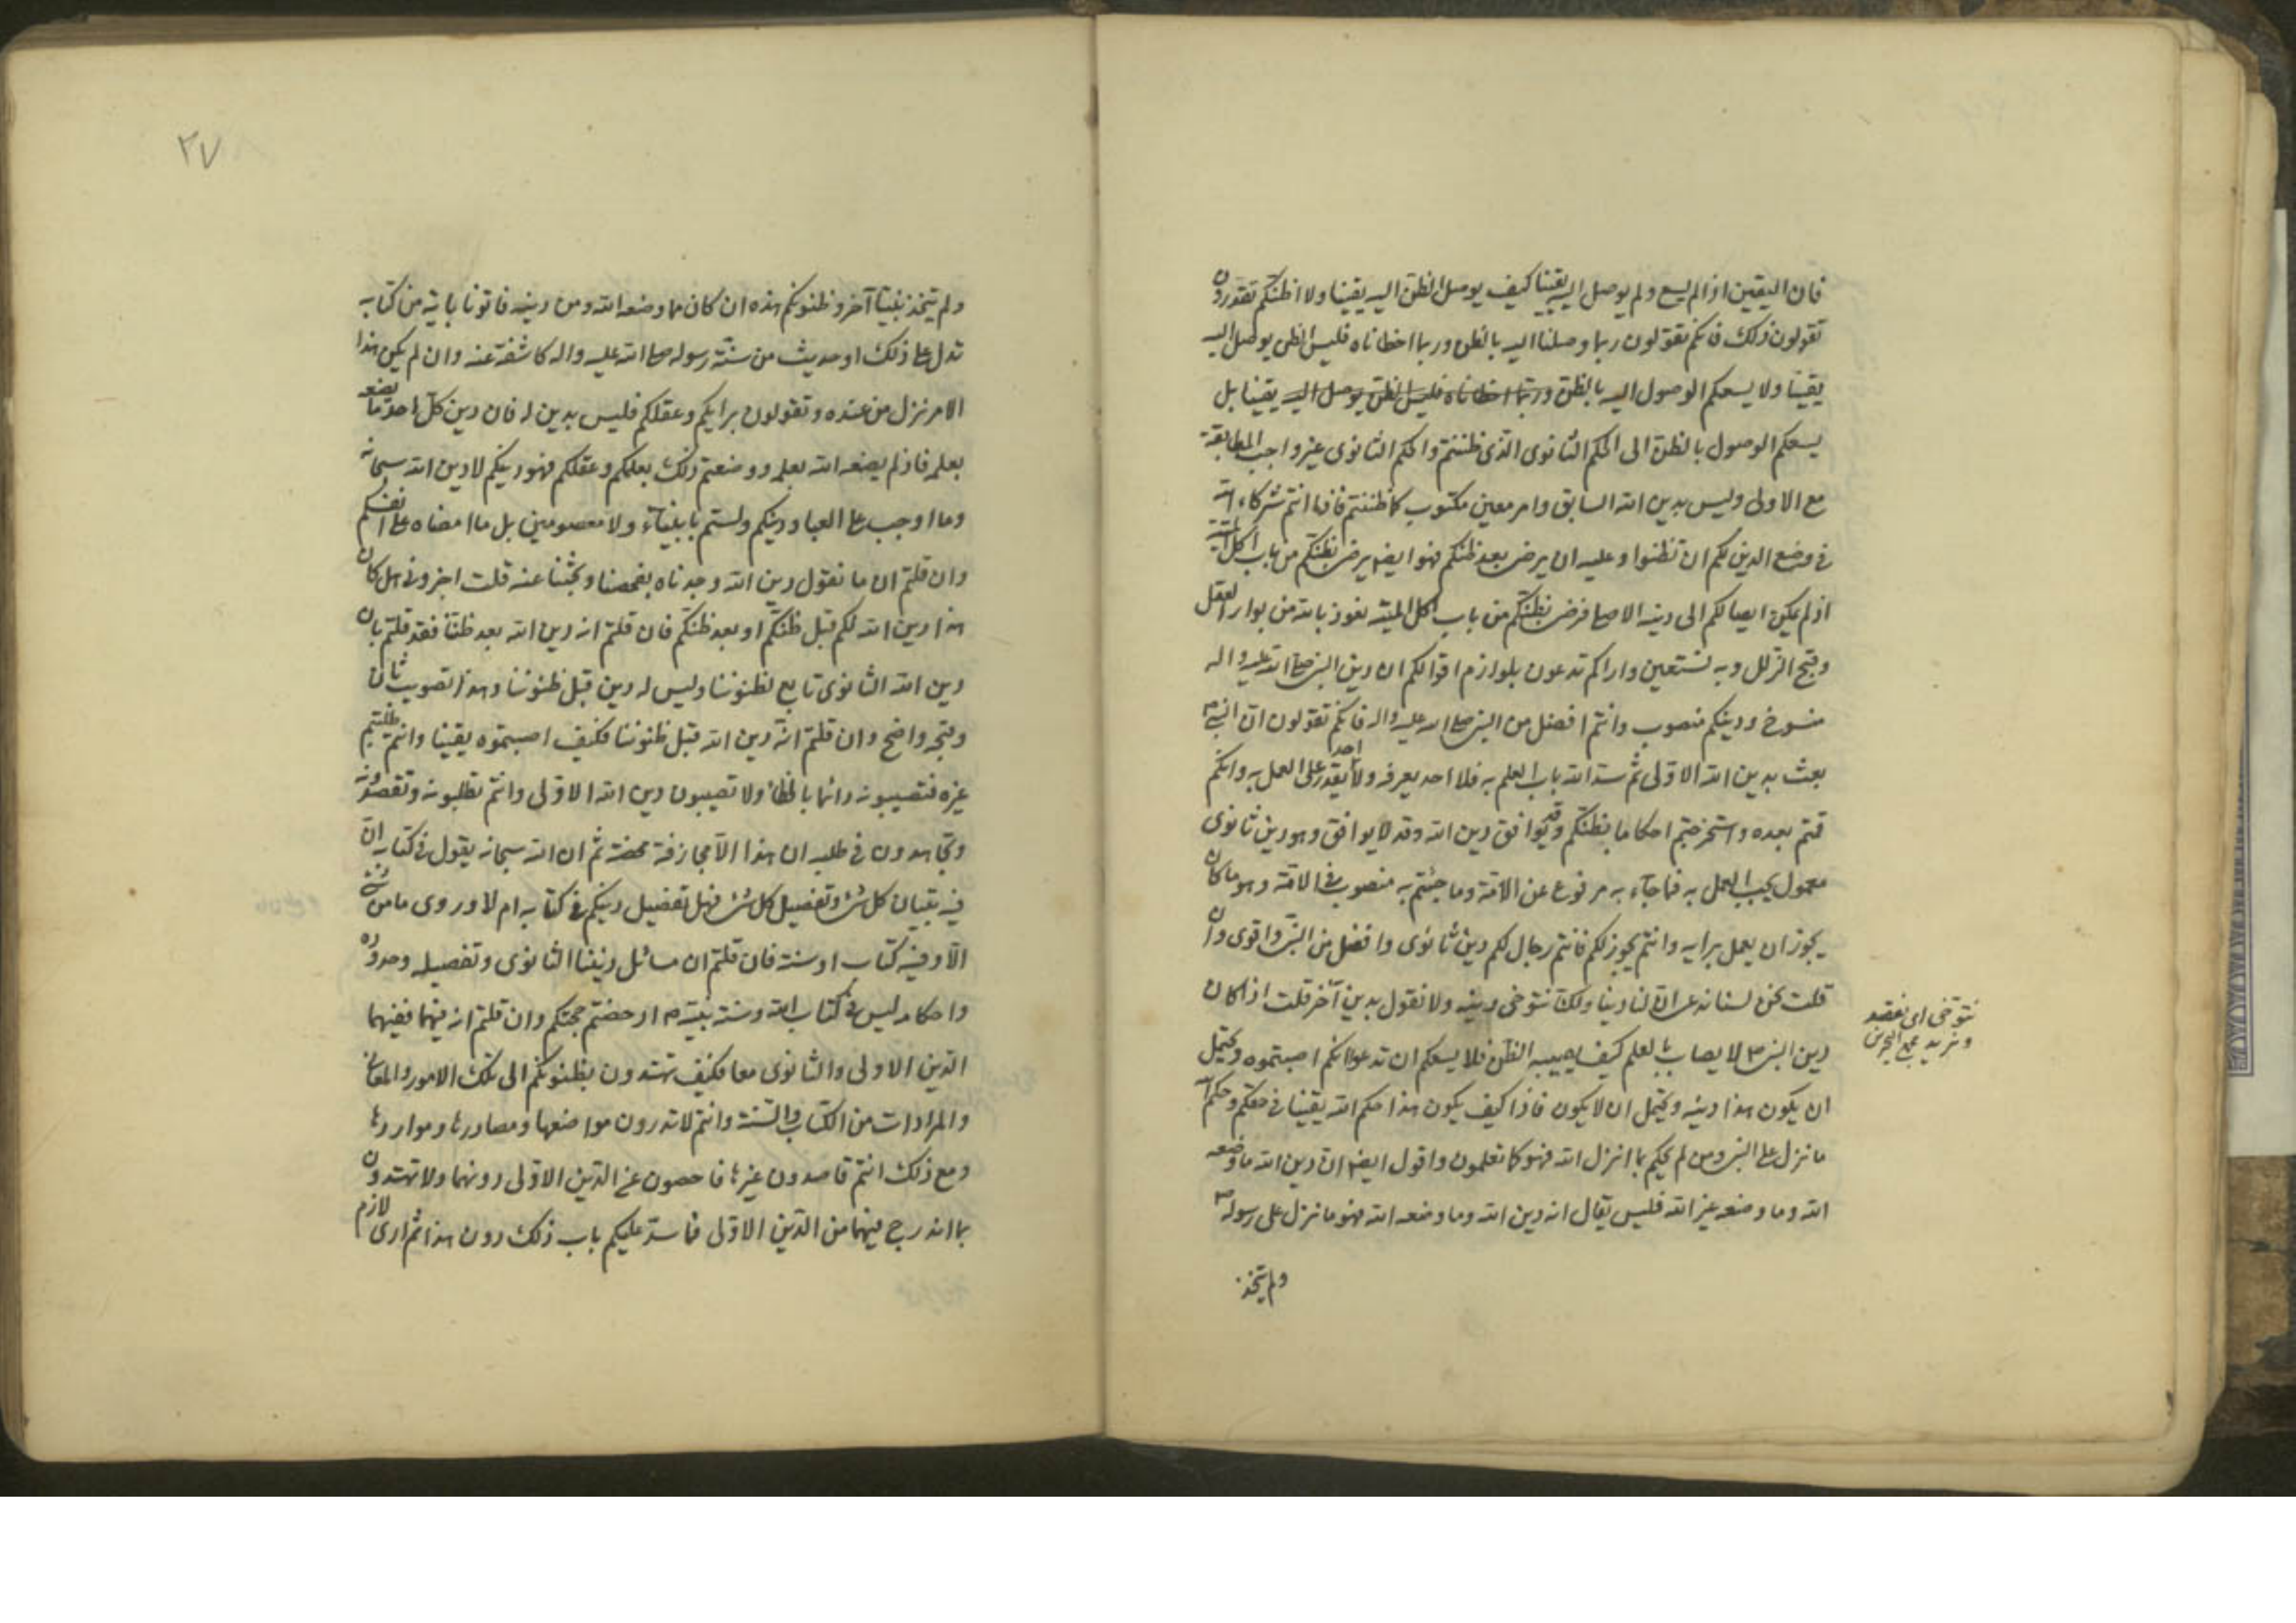 فان اليقين اذا لم يسع ولم يوصل اليه يقينا كيف يوصل الظن اليه يقينا ولا اظنكم تقدرون
تقولون ذلك فانكم تقولون ربما وصلنا اليه بالظن وربما اخطاناه فليس الظن يوصل اليه
يقينا ولا يسعكم الوصول اليه بالظن وربما اخطاناه فليس الظن يوصل اليه يقينا بل
يسعكم الوصول بالظن الى الحكم الثانوى الذى ظننتم والحكم الثانوى غير واجب المطابقة
مع الاولى وليس بدين الله السابق وامر معين مكتوب كما ظننتم فاذا انتم شركاء الله
فى وضع الدين لكم ان تظنوا وعليه ان يرضى بعد ظنكم فهو ايضا يرضى بظنكم من باب اكل الميتة
اذ لم يمكن ايصالكم الى دينه الاصلى فرضى بظنكم من باب اكل الميتة نعوذ بالله من بوار العقل
وقبح الزلل وبه نستعين واراكم تدعون بلوازم اقوالكم ان دين النبى صلى الله عليه واله
منسوخ ودينكم منصوب وانتم افضل من النبى صلى الله عليه واله فانكم تقولون ان النبى ص
بعث بدين الله الاولى ثم سد الله باب العلم به فلا احد يعرفه ولا احد يقدر على العمل به وانكم
قمتم بعده واستخرجتم احكاما بظنكم وقد يوافق دين الله وقد لا يوافق وهو دين ثانوى
معمول يجب العمل به فما جاء به مرفوع عن الامة وما جئتم به منصوب فى الامة وهو ما كان
يجوز ان يعمل برايه وانتم يجوز لكم فانتم رجال لكم دين ثانوى وافضل من النبى واقوى وان
قلت نحن لسنا نشرع الان لنا دينا ولكنا نتوخى دينه ولا نقول بدين آخر قلت اذا كان
دين النبى ص لا يصاب بالعلم كيف يصيبه الظن فلا يسعكم ان تدعوا انكم اصبتموه ويحتمل
ان يكون هذا دينه ويحتمل ان لا يكون فاذا كيف يكون هذا حكم الله يقينا فى حقكم وحكم الله
ما نزل على النبى ومن لم يحكم بما انزل الله فهو كما تعلمون واقول ايضا ان دين الله ما وضعه
الله وما وضعه غير الله فليس يقال انه دين الله وما وضعه الله فهو ما نزل على رسوله ص
ولم يتخذ
نتوخى اى نقصد
ونريد مجمع البحرين
٢٧
ولم يتخذ نبيا آخر وظنونكم هذه ان كان مما وضعه الله ومن دينه فاتونا باية من كتابه
تدل على ذلك او حديث من سنة رسوله صلى الله عليه واله كاشفة عنه وان لم يكن هذا
الامر نزل من عنده وتقولون برايكم وعقلكم فليس بدين له فان دين كل احد ما يضعه
بعلمه فاذ لم يضعه الله بعلمه ووضعتم ذلك بعلمكم وعقلكم فهو دينكم لا دين الله سبحانه
وما اوجب على العباد دينكم ولستم بانبياء ولا معصومين بل ما امضاه على انفسكم
وان قلتم ان ما نقول دين الله وجدناه بفحصنا وبحثنا عنه قلت اخبرونى هل كان
هذا دين الله لكم قبل ظنكم او بعد ظنكم فان قلتم انه دين الله بعد ظننا فقد قلتم بان
دين الله الثانوى تابع لظنوننا وليس له دين قبل ظنوننا وهذا تصويب ثان
وقبحه واضح وان قلتم انه دين الله قبل ظنوننا فكيف اصبتموه يقينا وانتم طلبتم
غيره فتصيبونه دائما بالخطأ ولا تصيبون دين الله الاولى وانتم تطلبونه وتقصدونه
وتجاهدون فى طلبه ان هذا الا مجازفة محضة ثم ان الله سبحانه يقول فى كتابه ان
فيه تبيان كل شىء وتفصيل كل شىء فهل تفصيل دينكم فى كتابه ام لا وروى ما من شىء
الا وفيه كتاب او سنة فان قلتم ان مسائل ديننا الثانوى وتفصيله وحدوده
واحكامه ليس فى كتاب الله وسنة نبيه ص ادحضتم حجتكم وان قلتم انه فيهما ففيهما
الدين الاولى والثانوى معا فكيف تهتدون بظنونكم الى تلك الامور والمعانى
والمرادات من الكتاب والسنة وانتم لا تدرون مواضعها ومصادرها ومواردها
ومع ذلك انتم قاصدون غيرها فاحصون عن الدين الاولى دونهما ولا تهتدون
بما اندرج فيهما من الدين الاولى فما سد عليكم باب ذلك دون هذا ثم ارى لازم